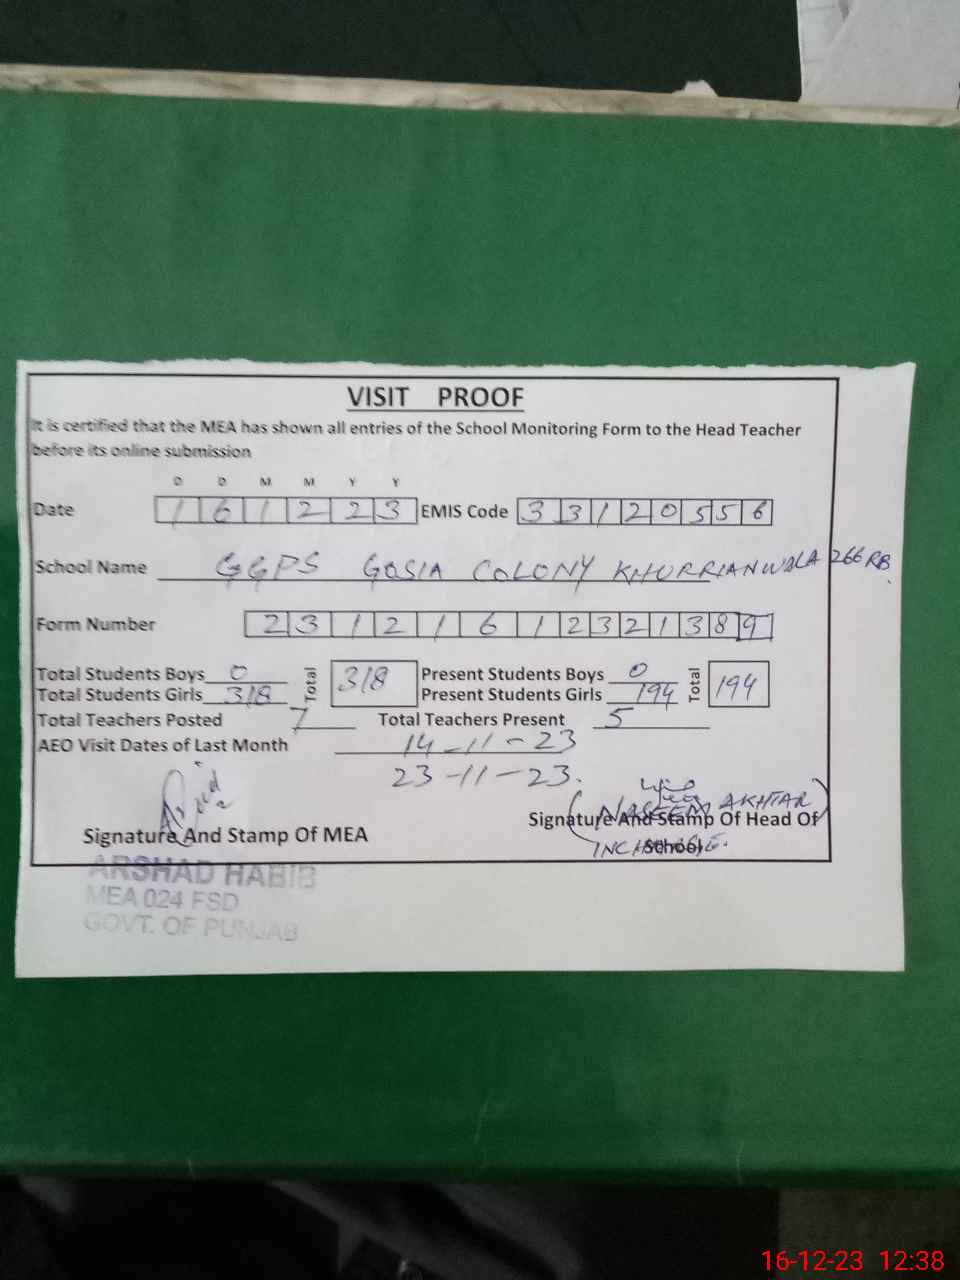 VISIT PROOF
It is certified that the MEA has shown all entries of the School Monitoring Form to the Head Teacher
before its online submission
D D M M Y Y
Date 1 6 1 2 2 3 EMIS Code 3 3 1 2 0 5 5 6
School Name GGPS GOSIA COLONY KHURRIANWALA 266 RB
Form Number 2 3 1 2 1 6 1 2 3 2 1 3 8 9
Total Students Boys 0 Total 318 Present Students Boys 0 Total 194
Total Students Girls 318 Present Students Girls 194
Total Teachers Posted 7 Total Teachers Present 5
AEO Visit Dates of Last Month 14-11-23
23-11-23.
(NASEEM AKHTAR)
Signature And Stamp Of MEA Signature And Stamp Of Head Of
School
INCHARGE.
ARSHAD HABIB
MEA 024 FSD
GOVT. OF PUNJAB
16-12-23 12:38